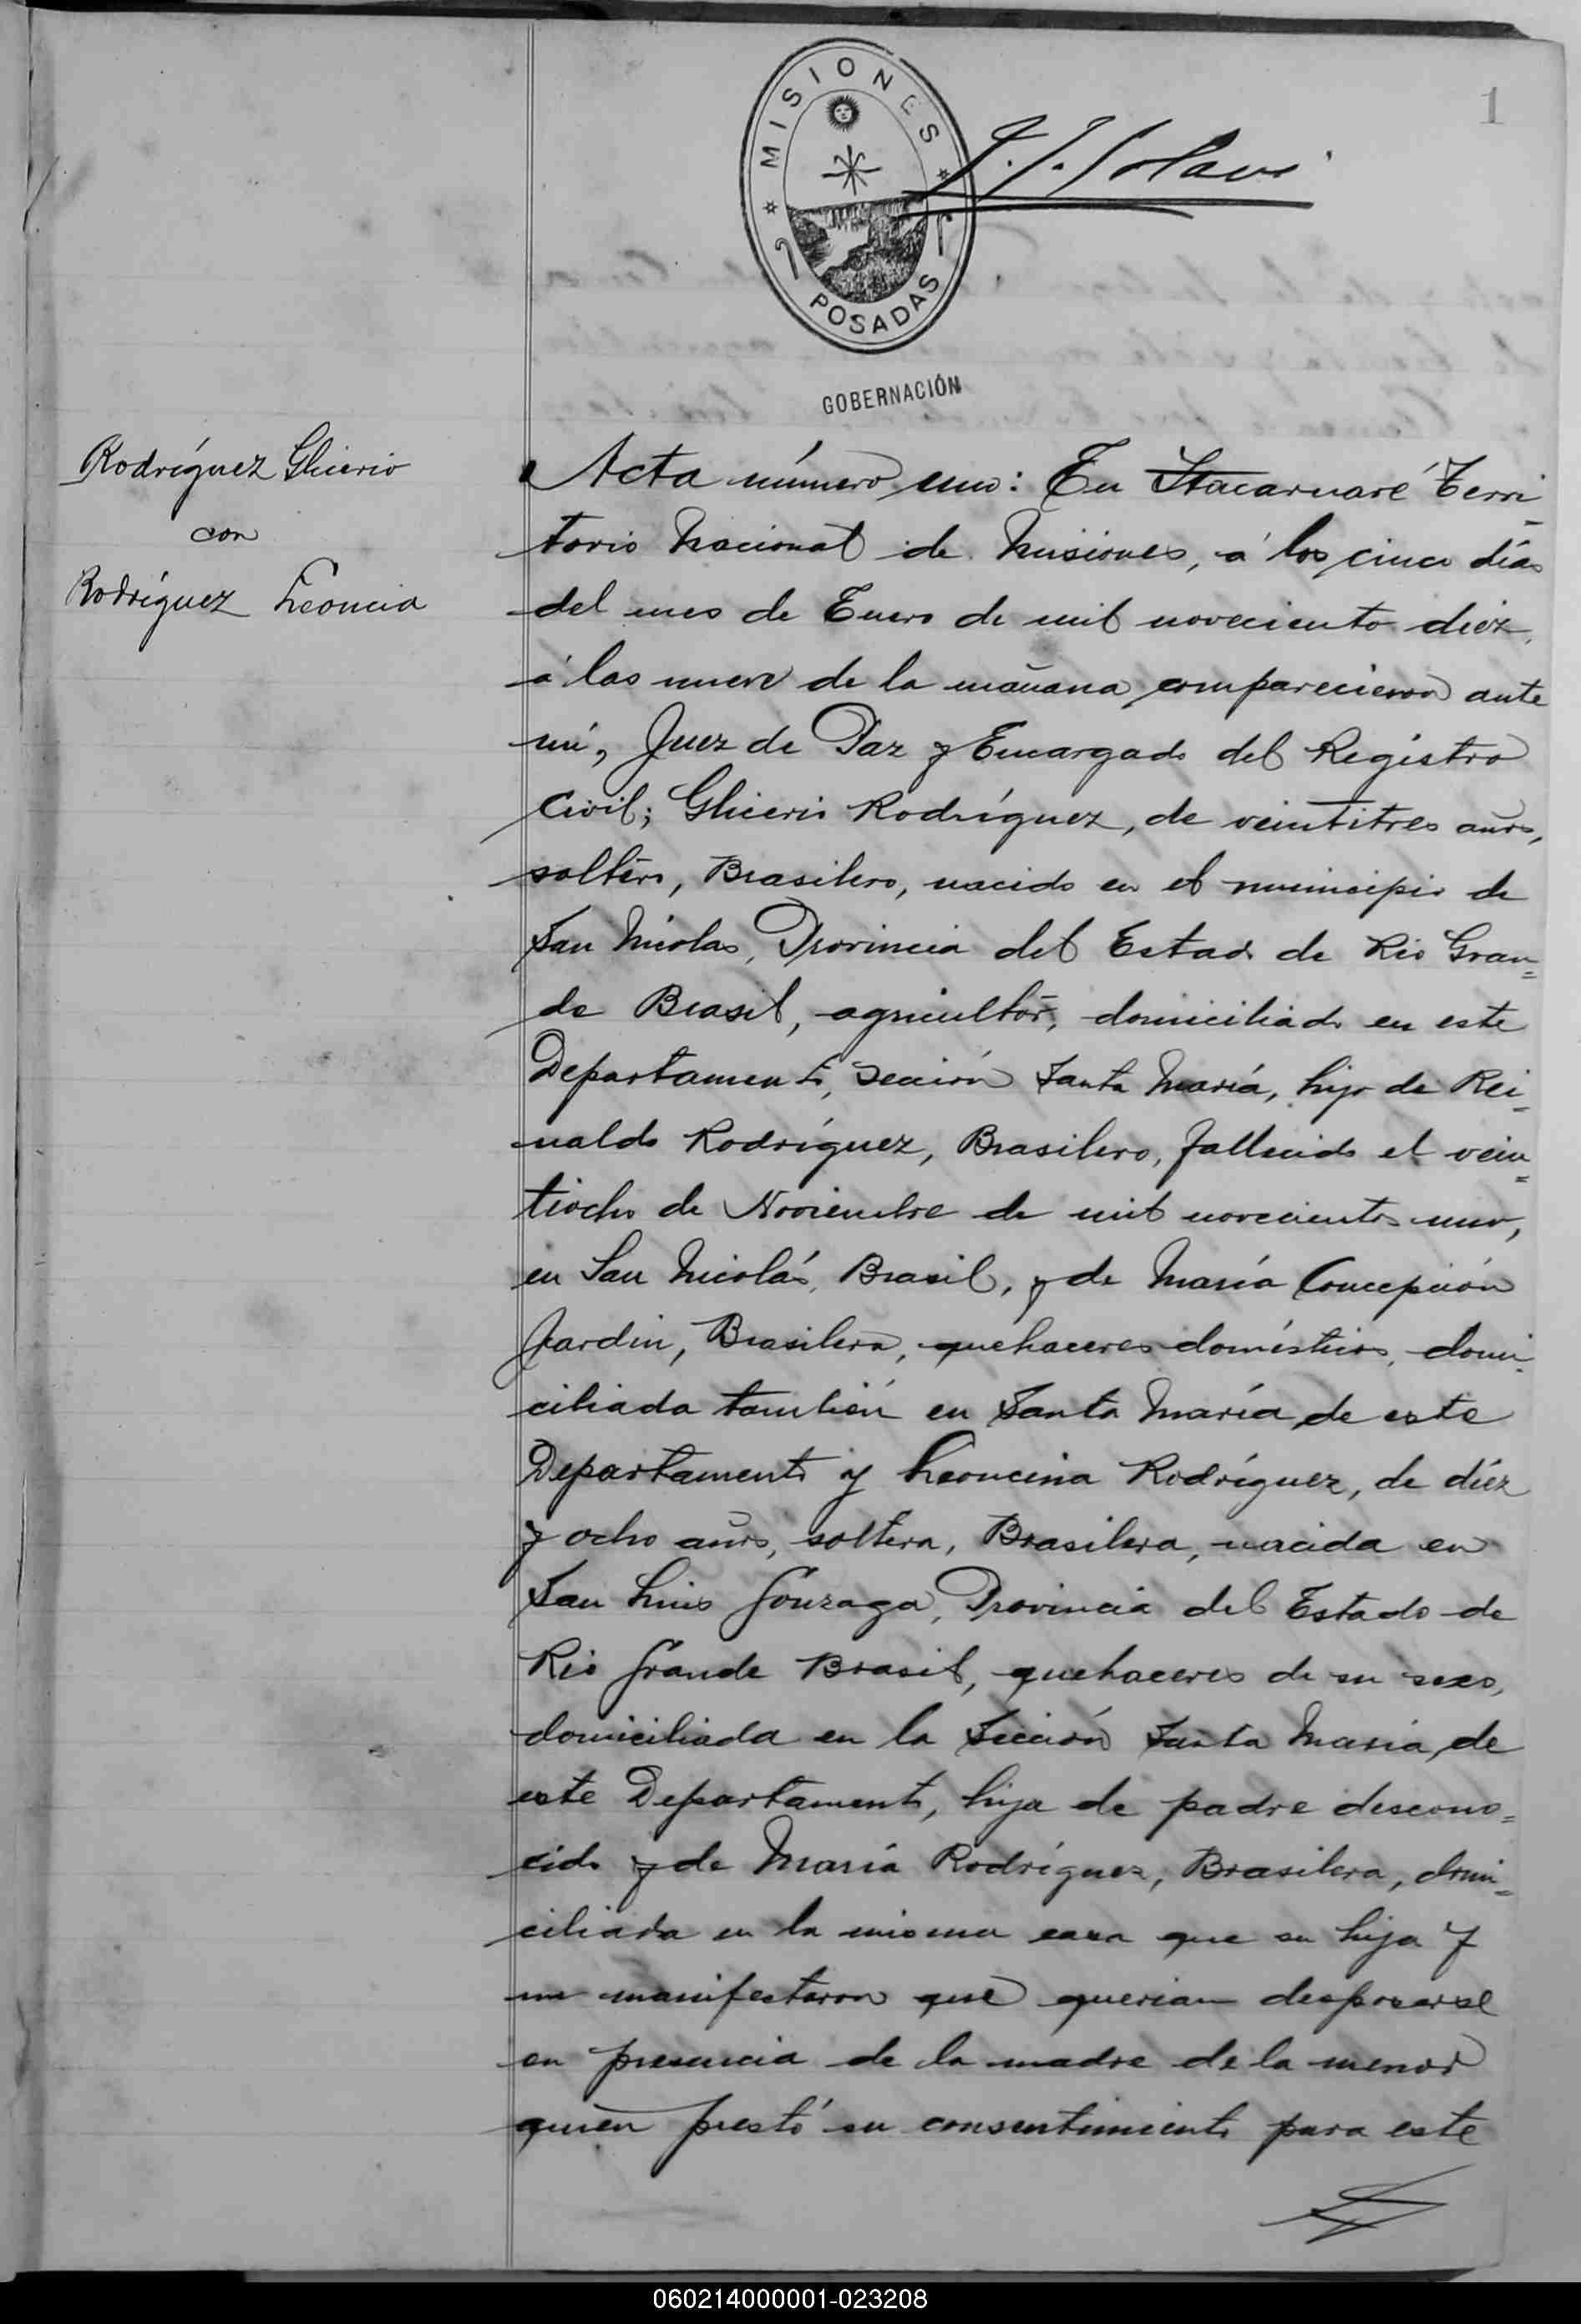 1
MISIONES
POSADAS
GOBERNACIÓN
Rodríguez Glicerio
con
Rodríguez Leoncia
Acta número uno: En Itacaruaré Terri-
torio Nacional de Misiones, á los cinco días
del mes de Enero de mil noveciento diez,
á las nueve de la mañana comparecieron ante
mí, Juez de Paz y Encargado del Registro
Civil; Glicerio Rodríguez, de veintitres años,
soltero, Brasilero, nacido en el municipio de
San Nicolas, Provincia del Estado de Rio Gran=
de Brasil, agricultor, domiciliado en este
Departamento, Sección Santa María, hijo de Rei-
naldo Rodríguez, Brasilero, fallecido el vein=
tiocho de Noviembre de mil novecientos uno,
en San Nicolás, Brasil, y de María Concepción
Jardin, Brasilera, quehaceres domésticos, domi-
ciliada también en Santa María, de este
Departamento y Leoncina Rodríguez, de diez
y ocho años, soltera, Brasilera, nacida en
San Luis Gonzaga, Provincia del Estado de
Rio Grande Brasil, quehaceres de su sexo,
domiciliada en la Sección Santa María, de
este Departamento, hija de padre descono=
cido y de María Rodríguez, Brasilera, domi=
ciliada en la misma casa que su hija y
me manifestaron que querian desposarse
en presencia de la madre de la menor
quien prestó su consentimiento para este
060214000001-023208